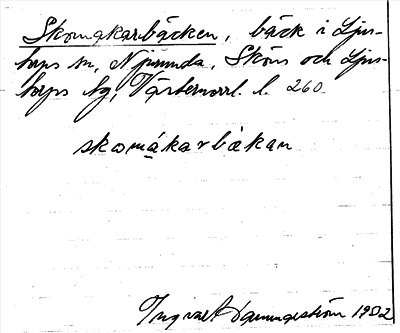 Skomakarbäcken, bäck i Ljus-
torps sn, Njurunda, Sköns och Ljus-
torps tg, Västernorrl. l. 260.
skomákarbäkan
Ingvar 1982